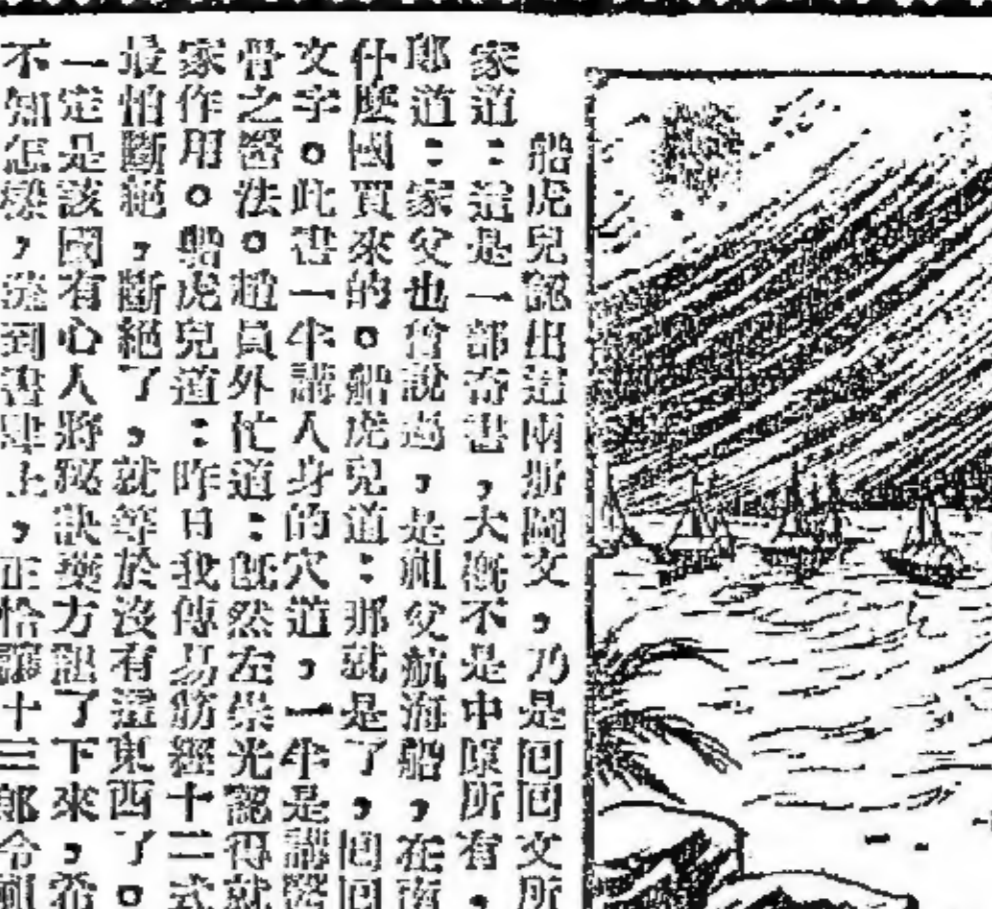 船虎兒認出這兩册圖文，乃是回回文所
家道：這是一部奇書，大概不是中原所有，
郎道：家父也曾說過，是祖父航海船，在南
什麼國買來的。船虎兒道：那就是了，回回
文字。此書一半講人身的穴道，一半是講醫
骨之醫法。趙員外忙道：既然左崇光認得就
家作用。船虎兒道：昨日我傳易筋經十二式
最怕斷絕，斷絕了，就等於沒有這東西了。
一定是該國有心人將秘訣藥方記了下來，希
不知怎樣，流到書肆上，正恰讓十三郎令祖